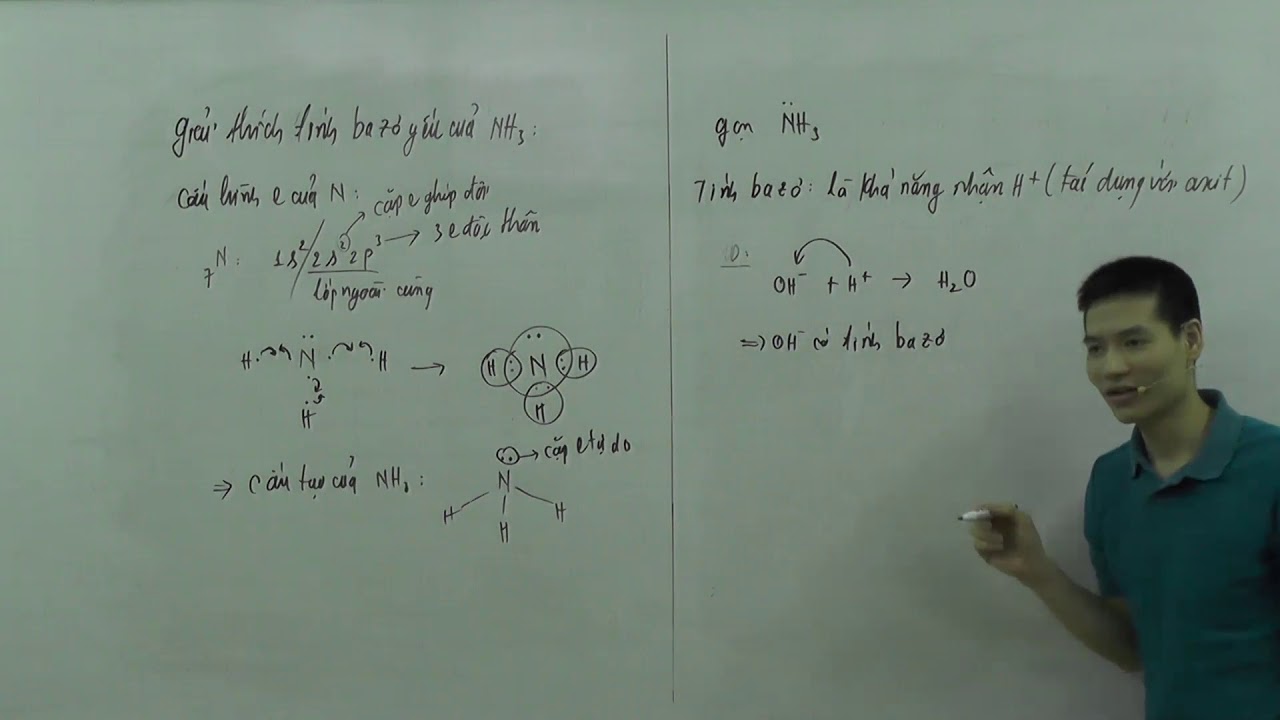 giải thích tính bazơ yếu của NH₃:
Cấu hình e của N:
cặp e ghép đôi
₇N: 1s²/2s²2p³
3e độc thân
lớp ngoài cùng
H N H
H
→
H N H
H
⇒ Cấu tạo của NH₃:
cặp e tự do
N
H H H
gọn N̈H₃
Tính bazơ: là khả năng nhận H⁺ (tác dụng với axit)
OH⁻ + H⁺ → H₂O
⇒ OH⁻ có tính bazơ